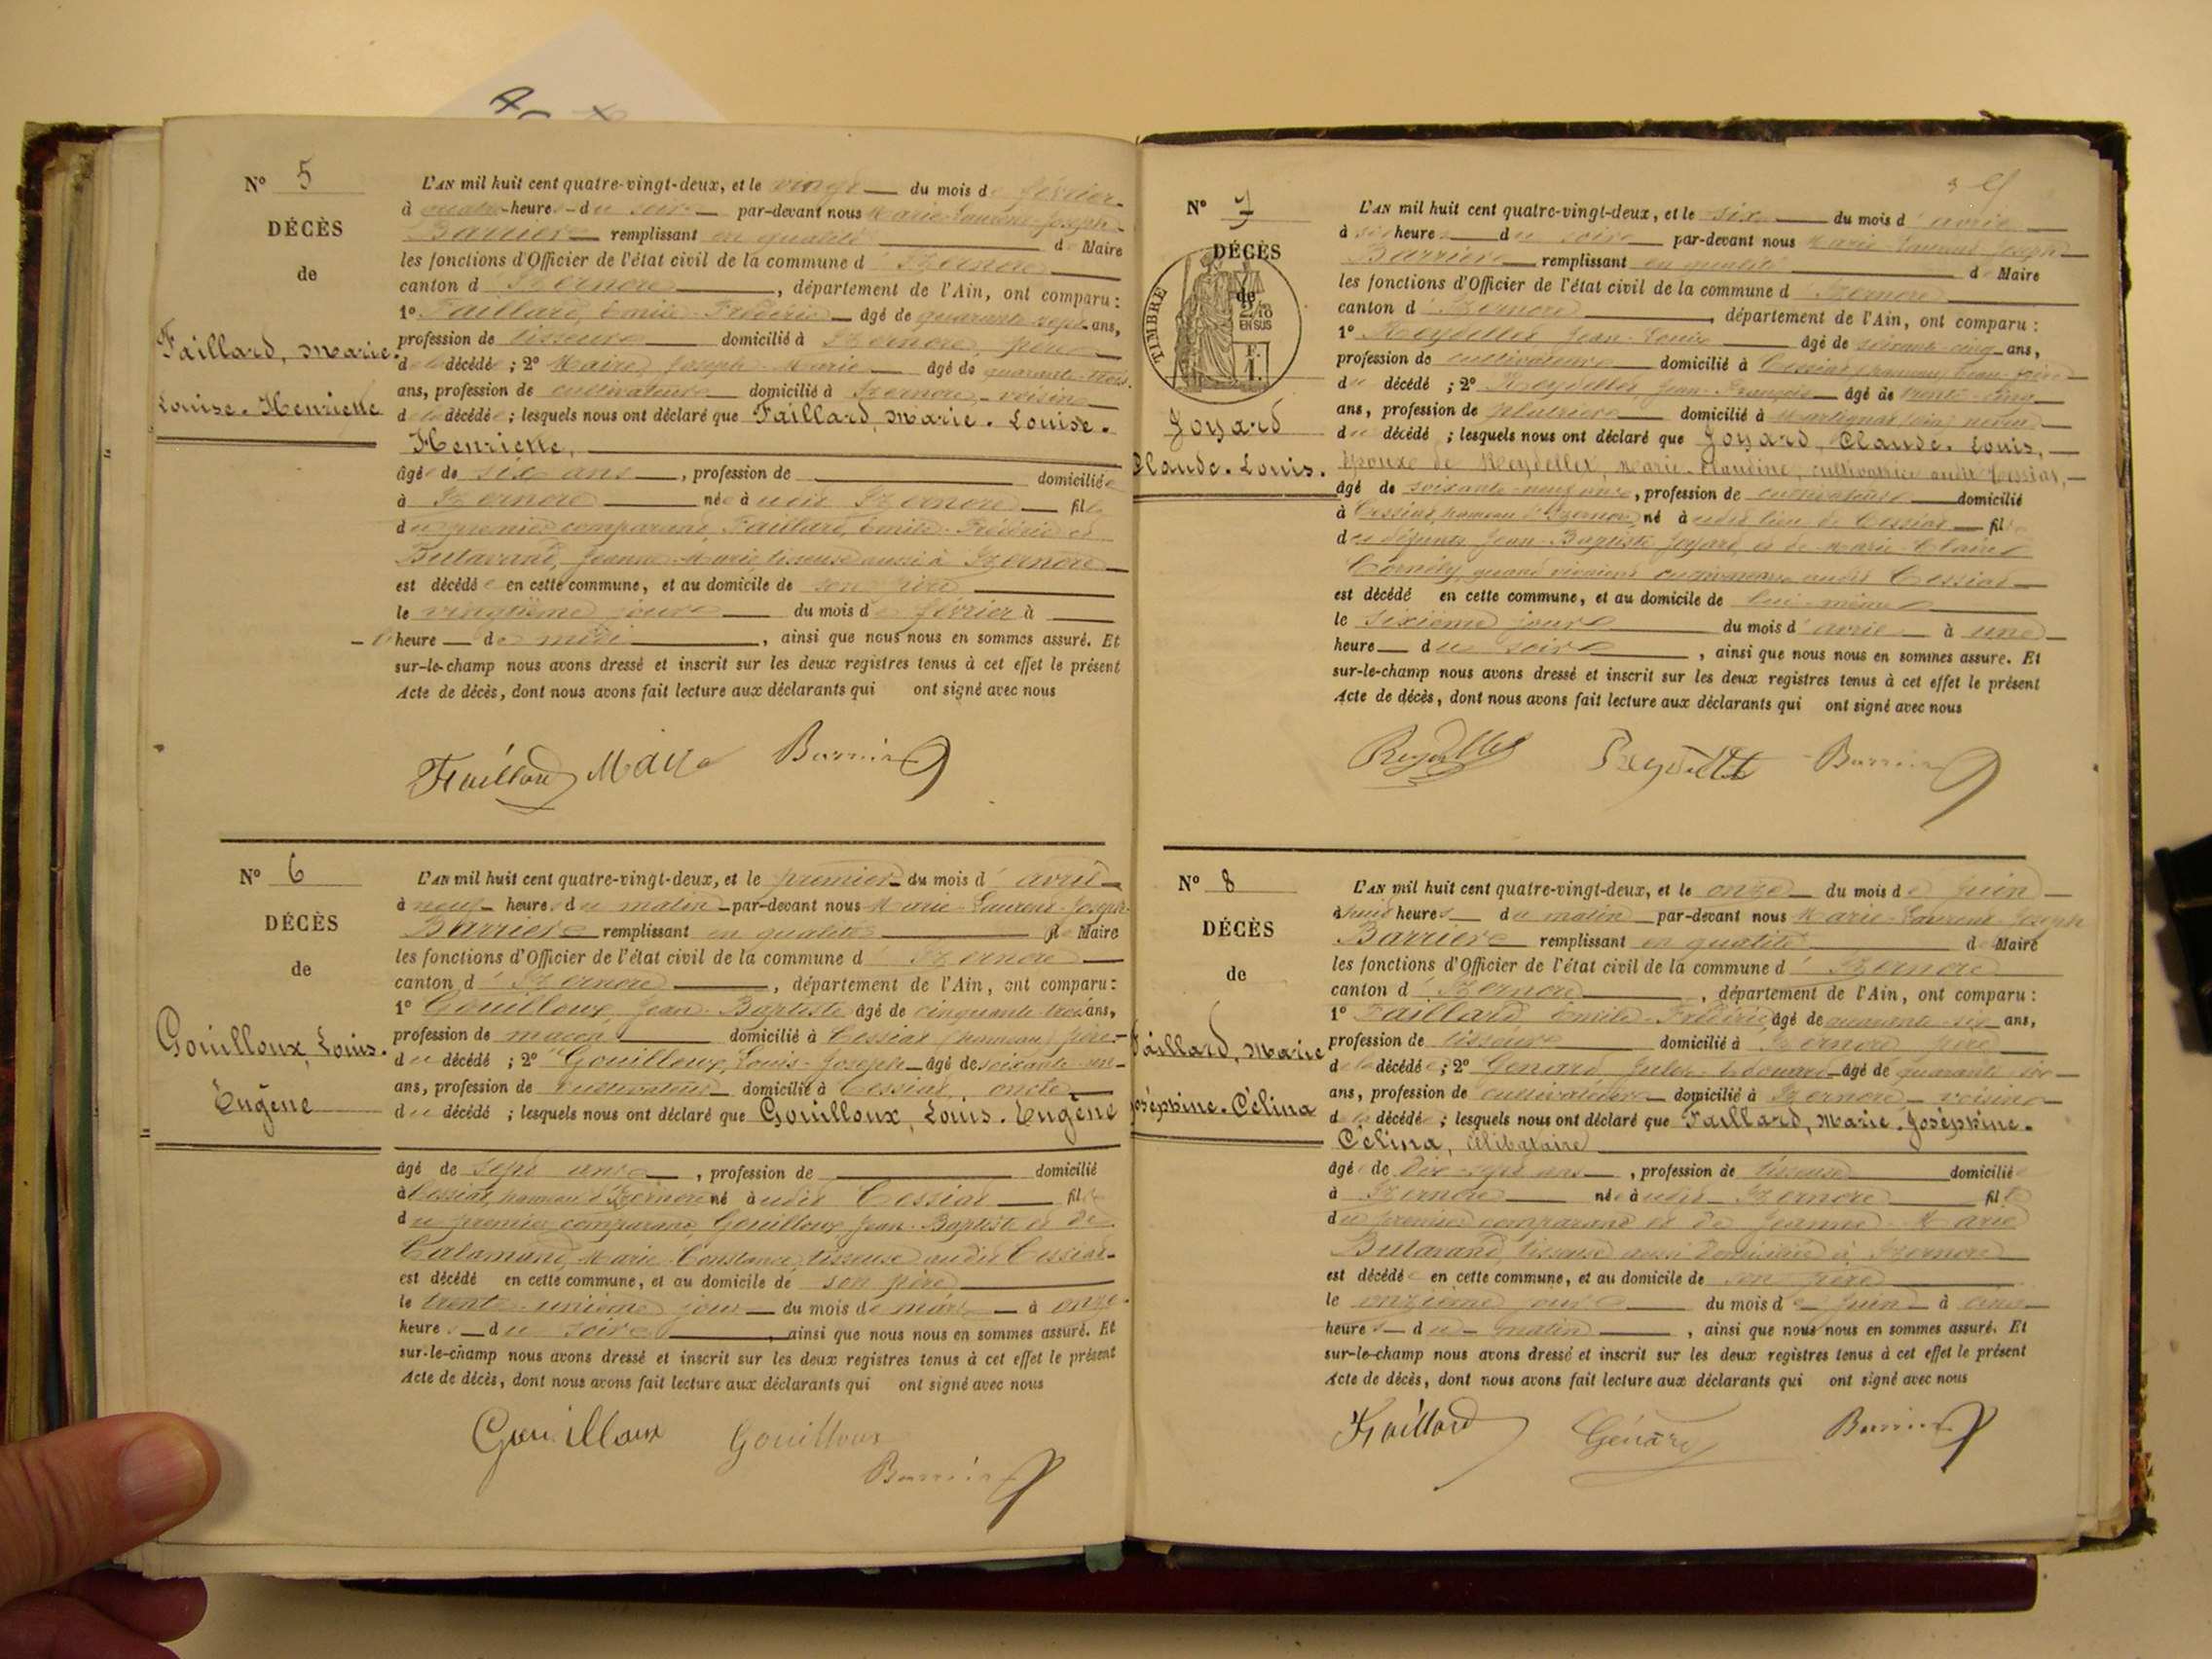 N° 5
DÉCÈS
de
Faillard, Marie.
Louise. Henriette
L'AN mil huit cent quatre-vingt-deux, et le vingt du mois de février
à quatre heures du soir par-devant nous Marie-Laurent-Joseph
Barrier remplissant en qualité de Maire
les fonctions d'Officier de l'état civil de la commune d'Izernore
canton d'Izernore, département de l'Ain, ont comparu :
1° Faillard, Emile Frédéric âgé de quarante sept ans,
profession de tisseur domicilié à Izernore, père
de la décédée ; 2° Maire, Joseph Marie âgé de quarante-trois
ans, profession de cultivateur domicilié à Izernore, voisin
de la décédée ; lesquels nous ont déclaré que Faillard, Marie. Louise.
Henriette,
âgée de six ans, profession de domiciliée
à Izernore née à udit Izernore fille
du premier comparant, Faillard, Emile Frédéric et
Butavand, Jeanne Marie, tisseuse aussi à Izernore
est décédée en cette commune, et au domicile de son père
le vingtième jour du mois de février à
heure de midi, ainsi que nous nous en sommes assuré. Et
sur-le-champ nous avons dressé et inscrit sur les deux registres tenus à cet effet le présent
Acte de décès, dont nous avons fait lecture aux déclarants qui ont signé avec nous
Faillard Maire Barrier
N° 6
DÉCÈS
de
Gouilloux, Louis.
Eugène
L'AN mil huit cent quatre-vingt-deux, et le premier du mois d'avril
à neuf heures du matin par-devant nous Marie-Laurent-Joseph
Barrier remplissant en qualité de Maire
les fonctions d'Officier de l'état civil de la commune d'Izernore
canton d'Izernore, département de l'Ain, ont comparu :
1° Gouilloux, Jean Baptiste âgé de cinquante trois ans,
profession de maçon domicilié à Cessiat (hameau) père
du décédé ; 2° Gouilloux, Louis-Joseph âgé de soixante un
ans, profession de cultivateur domicilié à Cessiat, oncle
du décédé ; lesquels nous ont déclaré que Gouilloux, Louis. Eugène
âgé de sept ans, profession de domicilié
à Cessiat, hameau d'Izernore né à udit Cessiat fils
du premier comparant, Gouilloux, Jean Baptiste et de
Marie Constance, tisseuse audit Cessiat
est décédé en cette commune, et au domicile de son père
le trente unième jour du mois de mars à onze
heures du soir, ainsi que nous nous en sommes assuré. Et
sur-le-champ nous avons dressé et inscrit sur les deux registres tenus à cet effet le présent
Acte de décès, dont nous avons fait lecture aux déclarants qui ont signé avec nous
Gouilloux Gouilloux
Barrier
N° 7
DÉCÈS
de
TIMBRE
2/10
EN SUS
Joyard
Claude. Louis.
L'AN mil huit cent quatre-vingt-deux, et le six du mois d'avril
à six heures du soir par-devant nous Marie Laurent Joseph
Barrier remplissant en qualité de Maire
les fonctions d'Officier de l'état civil de la commune d'Izernore
canton d'Izernore, département de l'Ain, ont comparu :
1° Reydellet Jean-Louis âgé de soixante-cinq ans,
profession de cultivateur domicilié à Cessiat (hameau) beau-frère
du décédé ; 2° Reydellet, Jean-François âgé de trente-cinq
ans, profession de plâtrier domicilié à Martignat neveu
du décédé ; lesquels nous ont déclaré que Joyard, Claude. Louis,
époux de Reydellet, Marie-Claudine, cultivatrice audit Cessiat,
âgé de soixante-neuf ans, profession de cultivateur domicilié
à Cessiat, hameau d'Izernore né à udit lieu de Cessiat fils
des défunts Jean-Baptiste Joyard et de Marie-Claire
quand vivaient cultivateurs audit Cessiat
est décédé en cette commune, et au domicile de lui-même
le sixième jour du mois d'avril à une
heure du soir, ainsi que nous nous en sommes assuré. Et
sur-le-champ nous avons dressé et inscrit sur les deux registres tenus à cet effet le présent
Acte de décès, dont nous avons fait lecture aux déclarants qui ont signé avec nous
Reydellet Reydellet Barrier
N° 8
DÉCÈS
de
Faillard, Marie
Joséphine. Célina
L'AN mil huit cent quatre-vingt-deux, et le onze du mois de Juin
à huit heures du matin par-devant nous Marie-Laurent-Joseph
Barrier remplissant en qualité de Maire
les fonctions d'Officier de l'état civil de la commune d'Izernore
canton d'Izernore, département de l'Ain, ont comparu :
1° Faillard Emile-Frédéric âgé de quarante-six ans,
profession de tisseur domicilié à Izernore père
de la décédée ; 2° Genard Jules Edouard âgé de quarante six
ans, profession de cultivateur domicilié à Izernore voisin
de la décédée ; lesquels nous ont déclaré que Faillard, Marie. Joséphine.
Célina, célibataire
âgée de dix-sept ans, profession de tisseuse domiciliée
à Izernore née à udit Izernore fille
du premier comparant et de Jeanne Marie
Butavand, tisseuse aussi domiciliée à Izernore
est décédée en cette commune, et au domicile de son père
le onzième jour du mois de Juin à cinq
heures du matin, ainsi que nous nous en sommes assuré. Et
sur-le-champ nous avons dressé et inscrit sur les deux registres tenus à cet effet le présent
Acte de décès, dont nous avons fait lecture aux déclarants qui ont signé avec nous
Faillard Génard Barrier